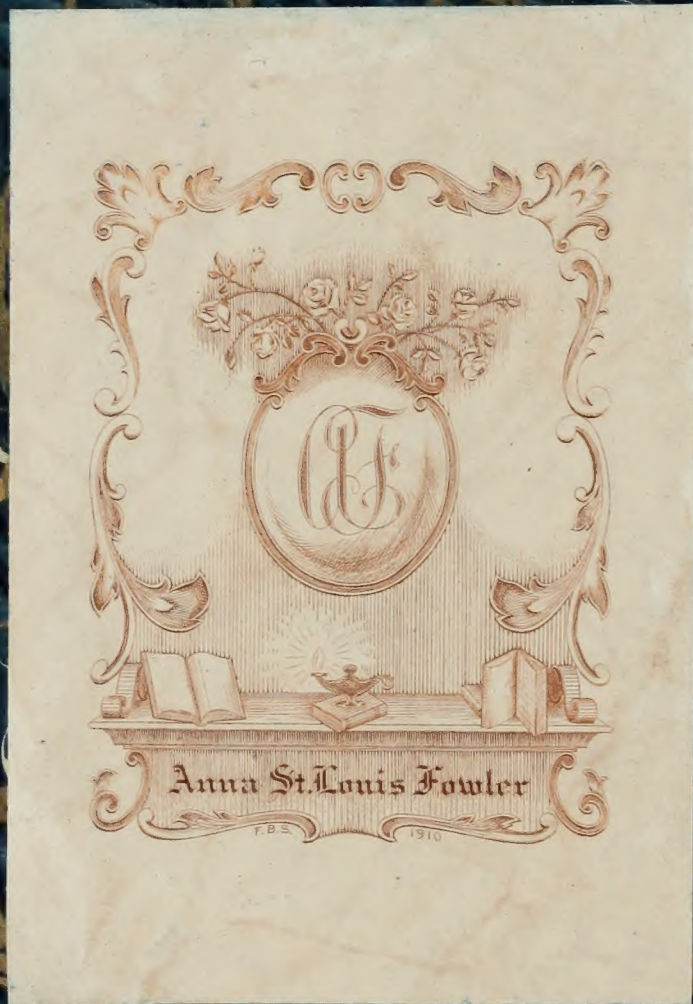 Anna St. Louis Fowler
F.B.S. 1910